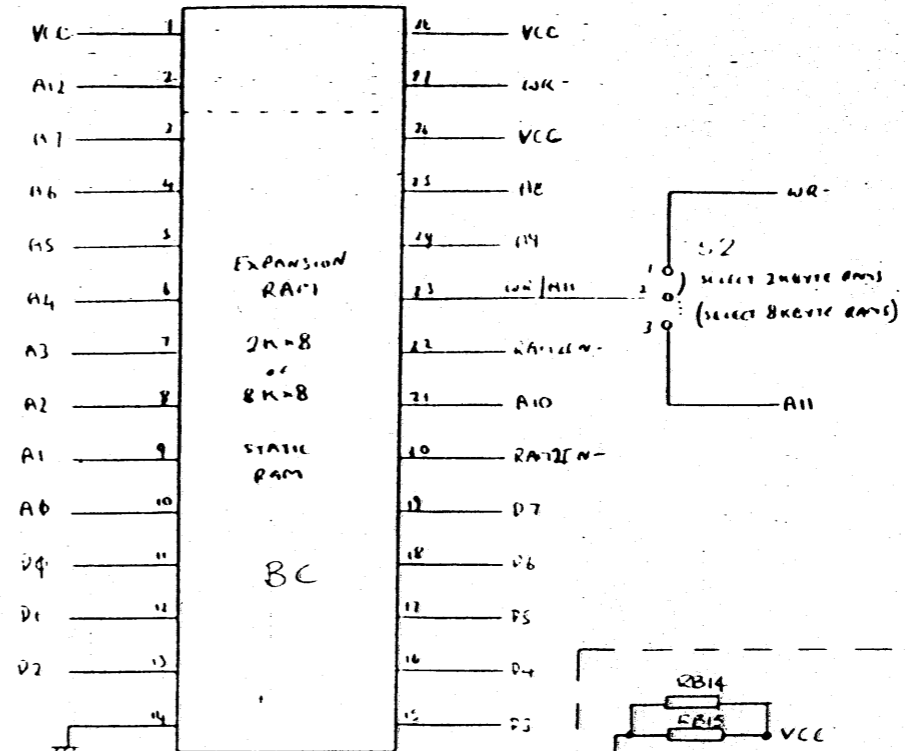 VCC 1
A12 2
A7 3
A6 4
A5 5
A4 6
A3 7
A2 8
A1 9
A0 10
11
D1 12
D2 13
14
EXPANSION
RAM
2K×8
or
8K×8
STATIC
RAM
BC
VCC
27 WR-
26 VCC
25 A8
24 A9
23 WR/A11
22
21 A10
20 RAM2EN-
19 D7
18 D6
17 D5
16 D4
15 D3
WR-
S2
1 SELECT 2KBYTE RAMS
2
(SELECT 8KBYTE RAMS)
3
A11
RB14
RB15
VCC